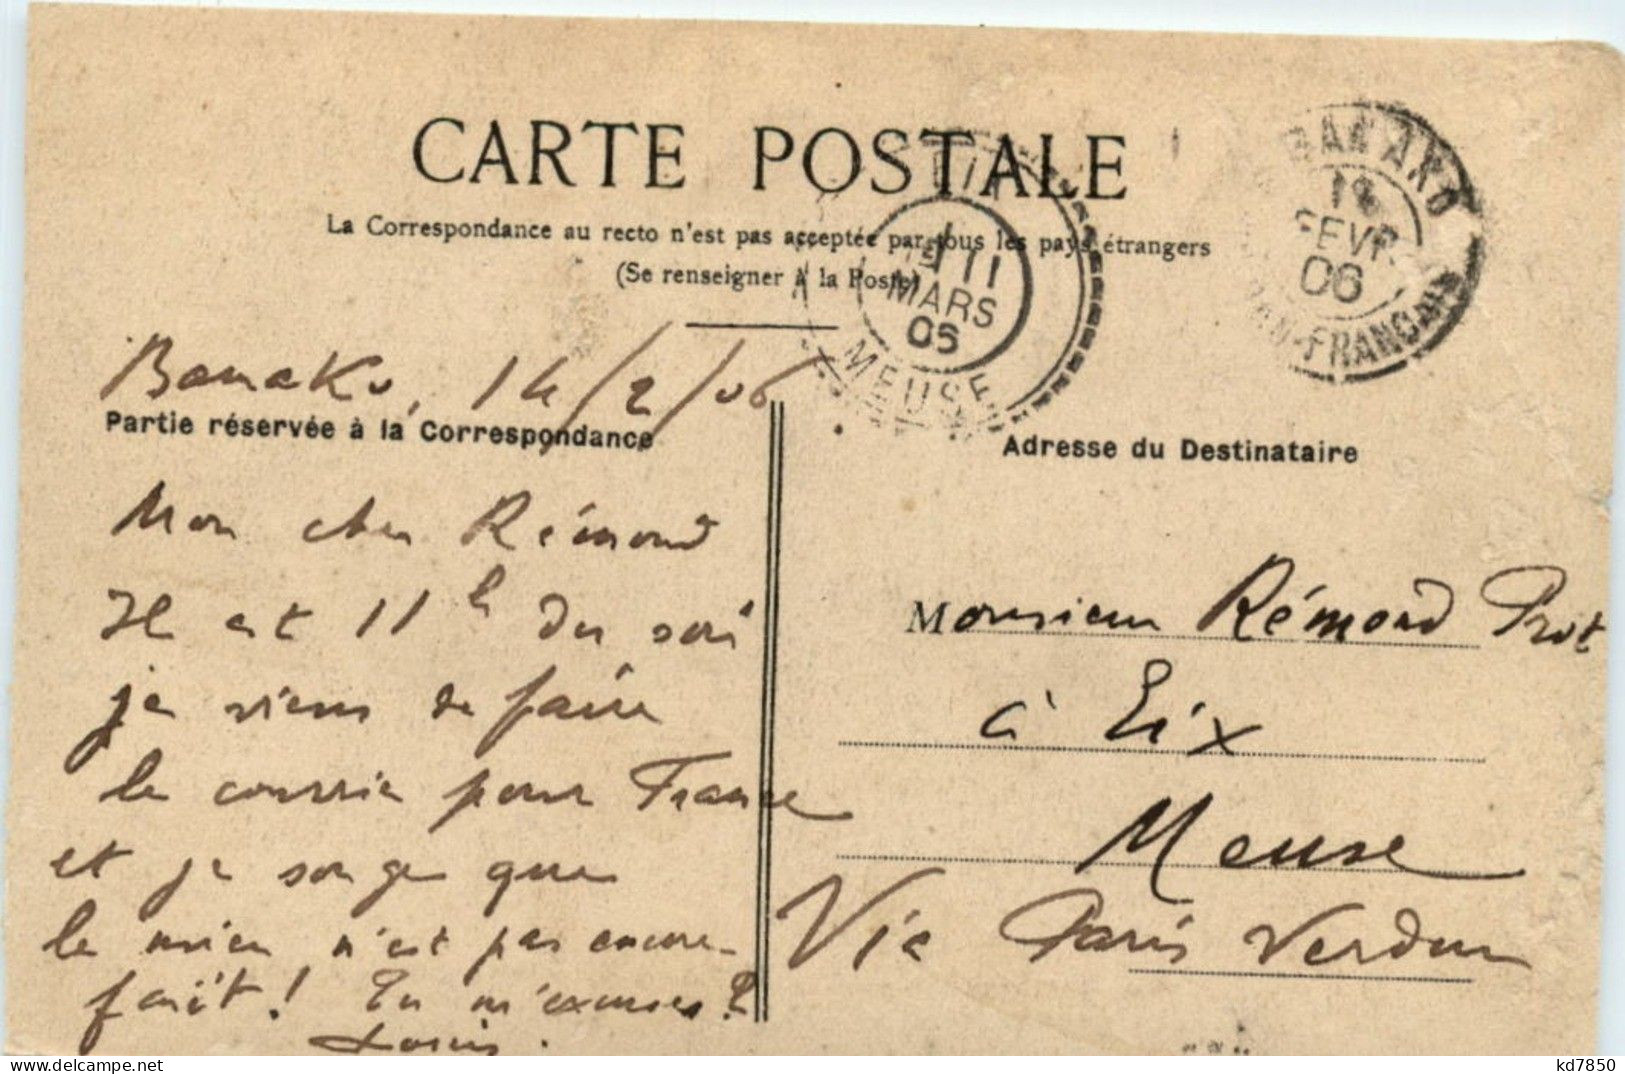 CARTE POSTALE
La Correspondance au recto n'est pas acceptée par tous les pays étrangers
(Se renseigner à la Poste)
BAMAKO
FEVR.
06
FRANÇAIS
11
MARS
06
MEUSE
Bamako, 14/2/06
Partie réservée à la Correspondance
Mon cher Rémond
Il est 11 h du soir
je viens de faire
le courrier pour France
et je songe que
le mien n'est pas encore
fait! Tu m'excuses?
Louis.
Adresse du Destinataire
Monsieur Rémond Prot
à Eix
Meuse
Via Paris Verdun
kd7850